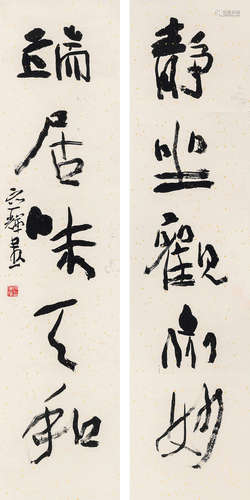 靜坐觀众妙
端居味天和